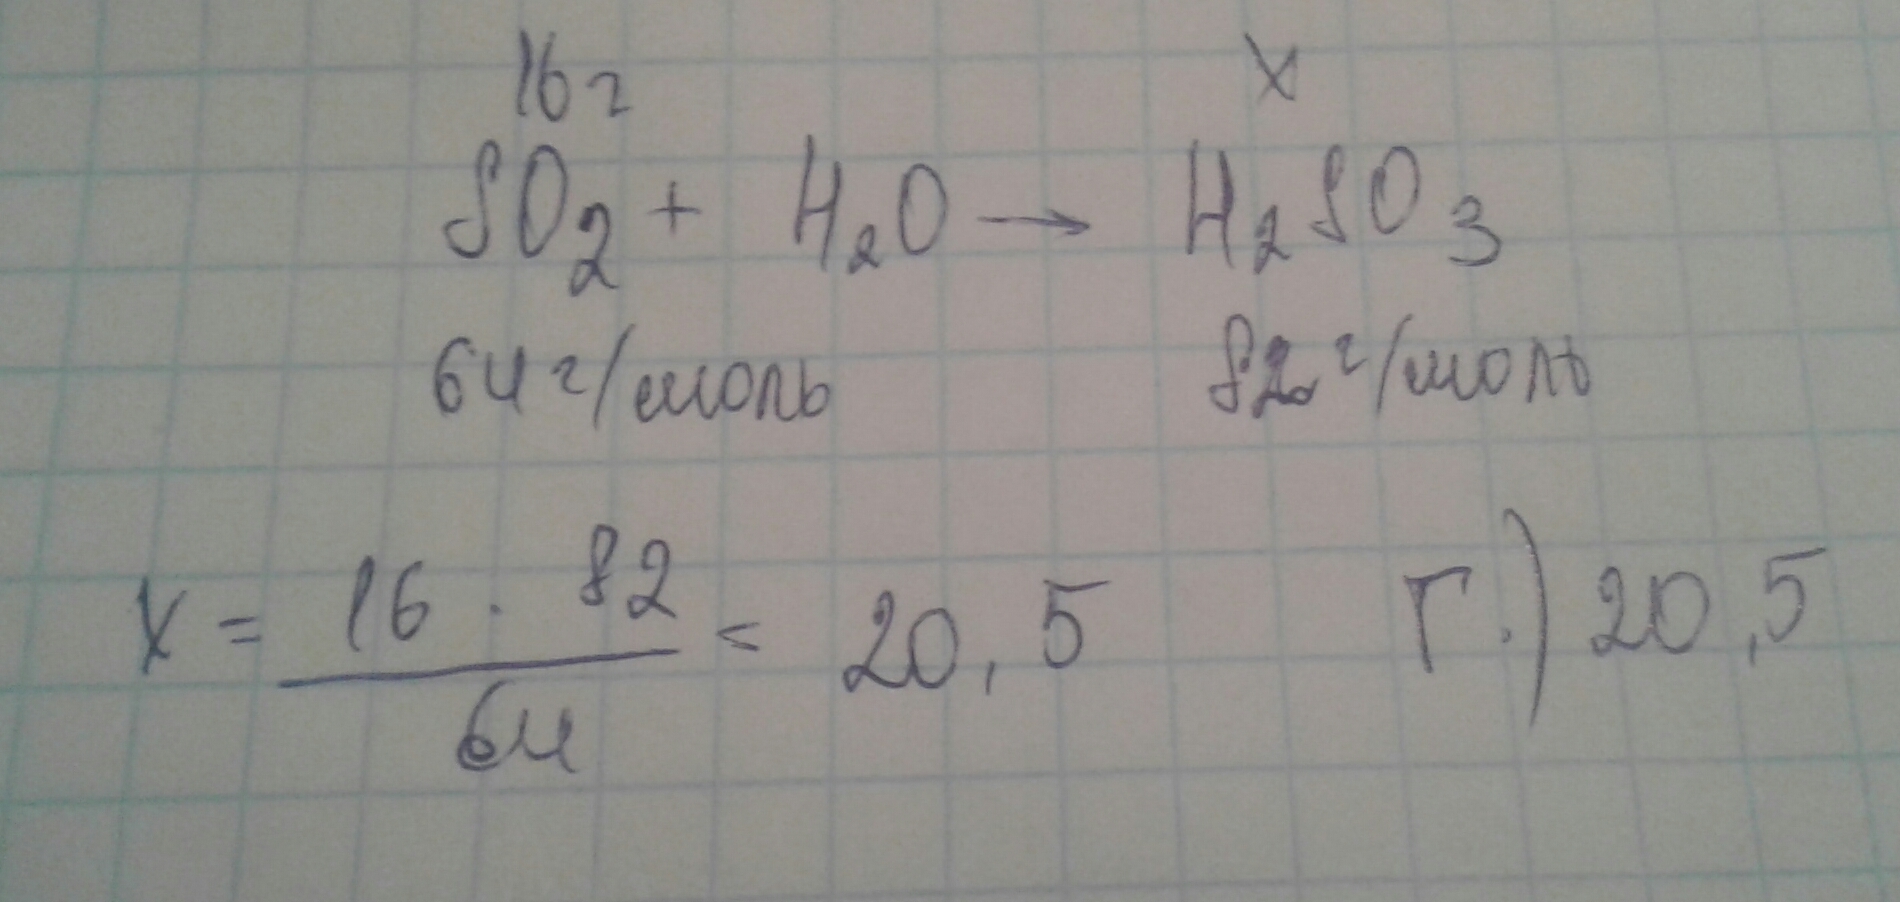 16 г X
SO₂ + H₂O → H₂SO₃
64 г/моль 82 г/моль
X = 16 · 82 / 64 = 20,5 Г.) 20,5